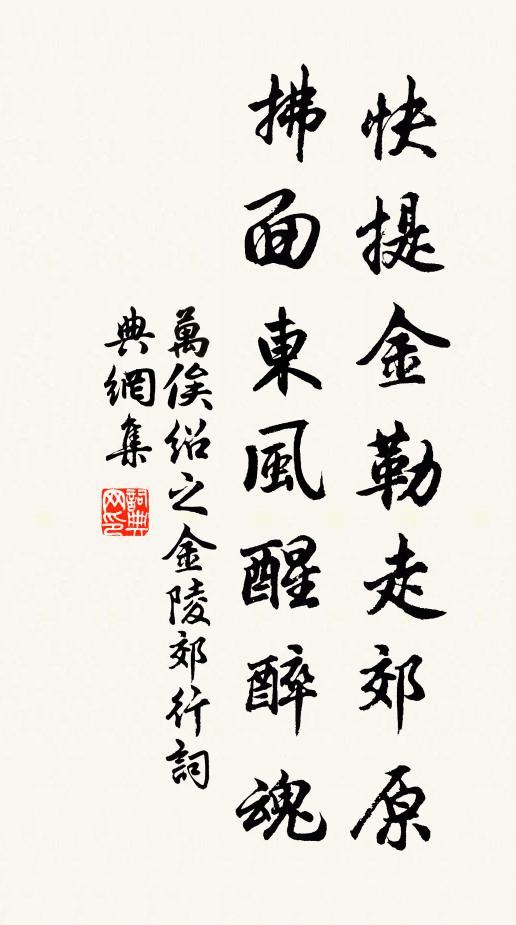 快提金勒走郊原
拂面東風醒醉魂
萬俟紹之金陵郊行詞
典網集
詞典网印